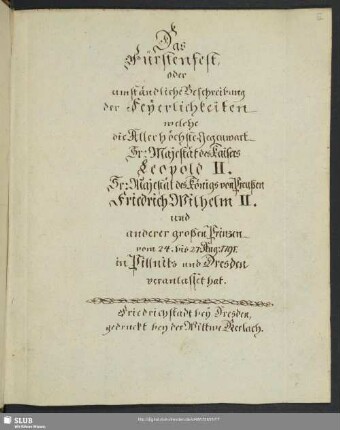 Das
Fürstenfest,
oder
umständliche Beschreibung
der Feyerlichkeiten
welche
die Allerhöchste Gegenwart
Sr: Majestät des Kaisers
Leopold II.
Sr: Majestät des Königs von Preußen
Friedrich Wilhelm II.
und
anderer großen Prinzen
vom 24. bis 27. Aug: 1791.
in Pillnitz und Dresden
veranlasset hat.
Friedrichstadt bey Dresden,
gedruckt bey der Wittwe Gerlach.
SLUB
Wir führen Wissen.